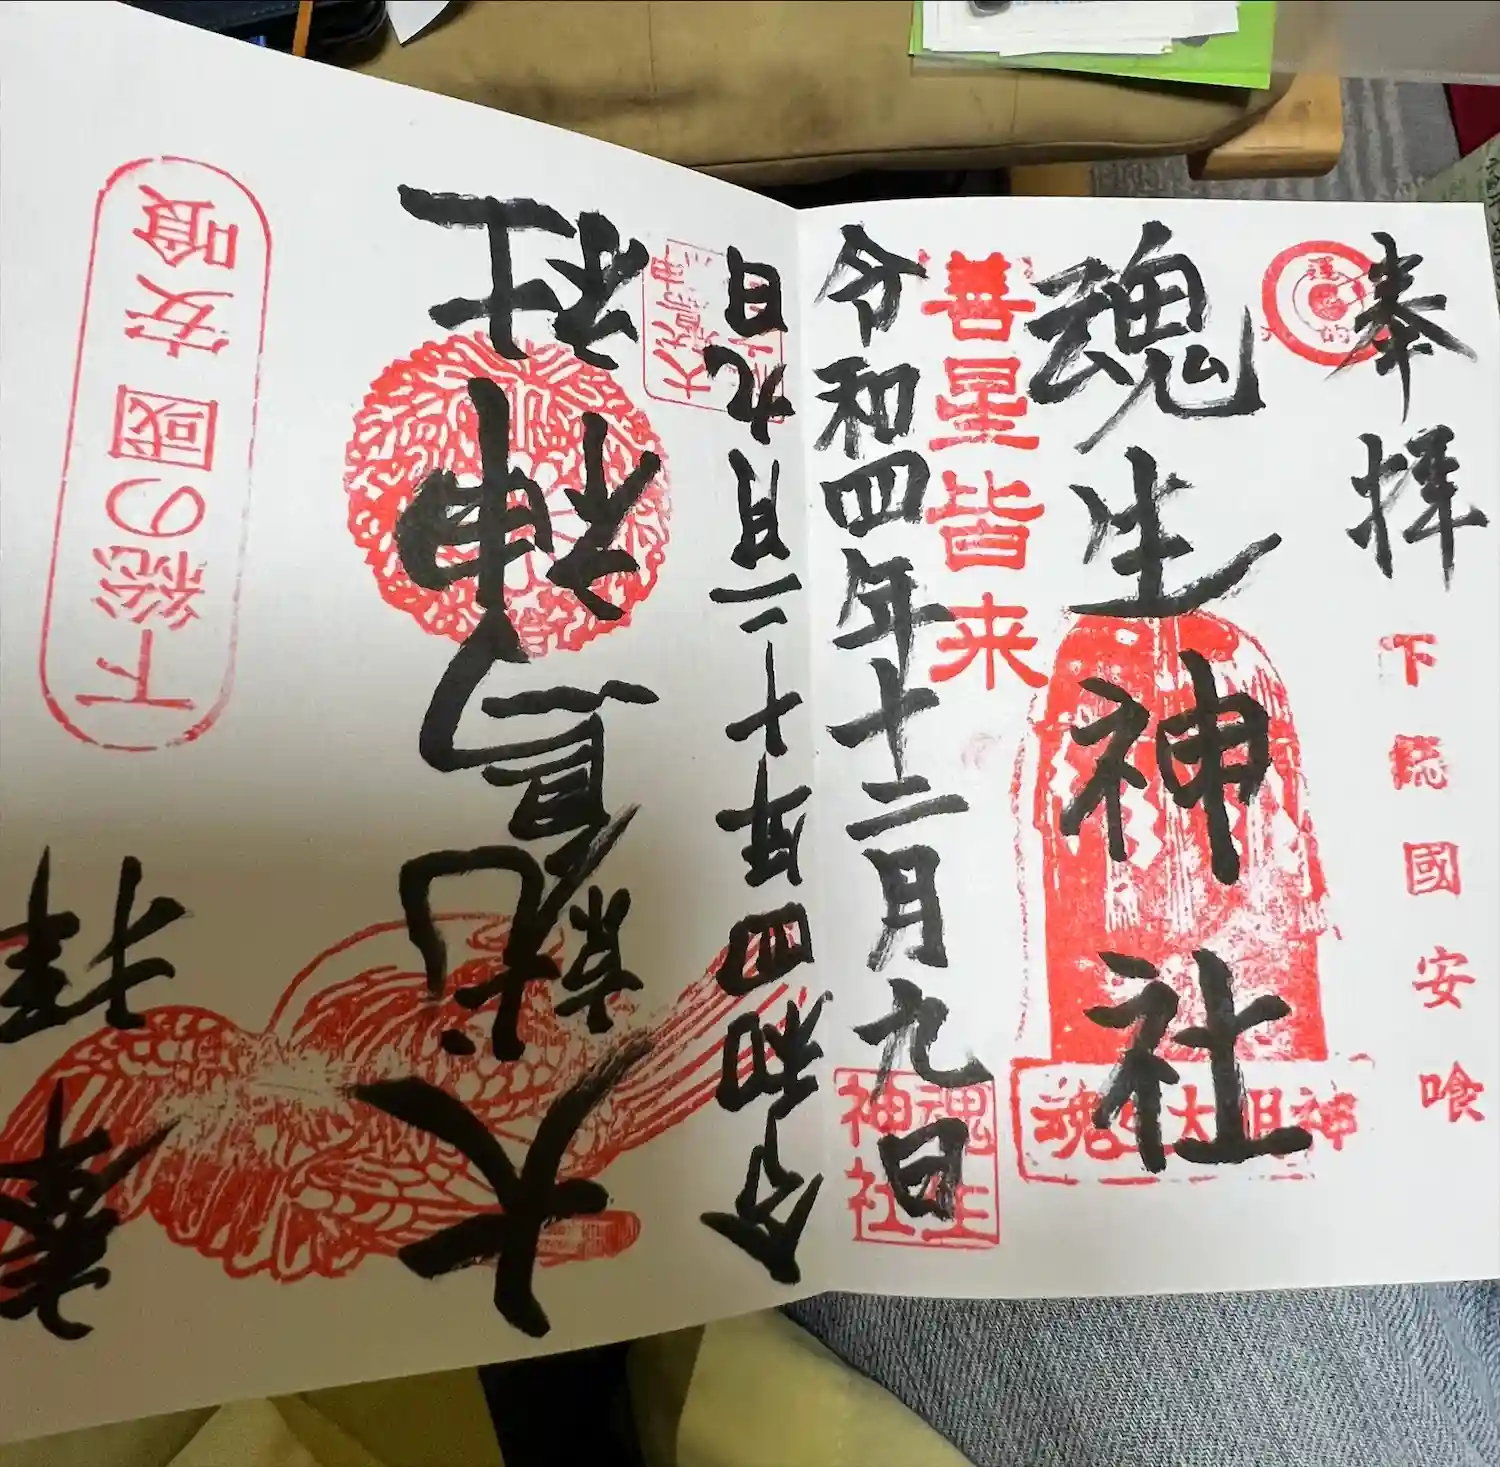 奉拝
下総國安喰
魂生神社
魂生大明神
善星皆来
令和四年十二月九日
魂生神社
奉拝
下総の國安喰
大鷲神社
令和四年十二月九日